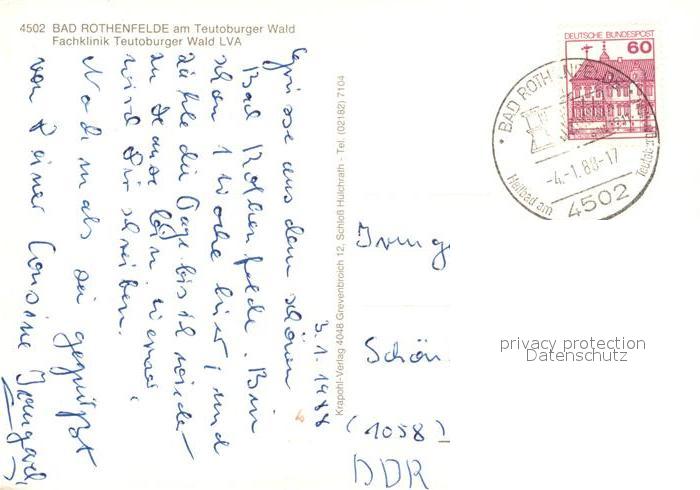 4502 BAD ROTHENFELDE am Teutoburger Wald
Fachklinik Teutoburger Wald LVA
3.1.1988
Grüsse aus dem schönen
Bad Rothenfelde. Bin
schon 1 Woche hier, und
zähle die Tage bis ich wieder
zu Hause bin.
wird Dir schreiben.
Nochmals sei gegrüßt
von Deiner Cousine Irmgard
Krapohl-Verlag 4048 Grevenbroich 12, Schloß Hülchrath - Tel. (02182) 7104
DEUTSCHE BUNDESPOST
60
BAD ROTHENFELDE
-4.-1.88-17
4502
Heilbad am Teutoburger
Irmg
Schön
(1058)
DDR
privacy protection
Datenschutz